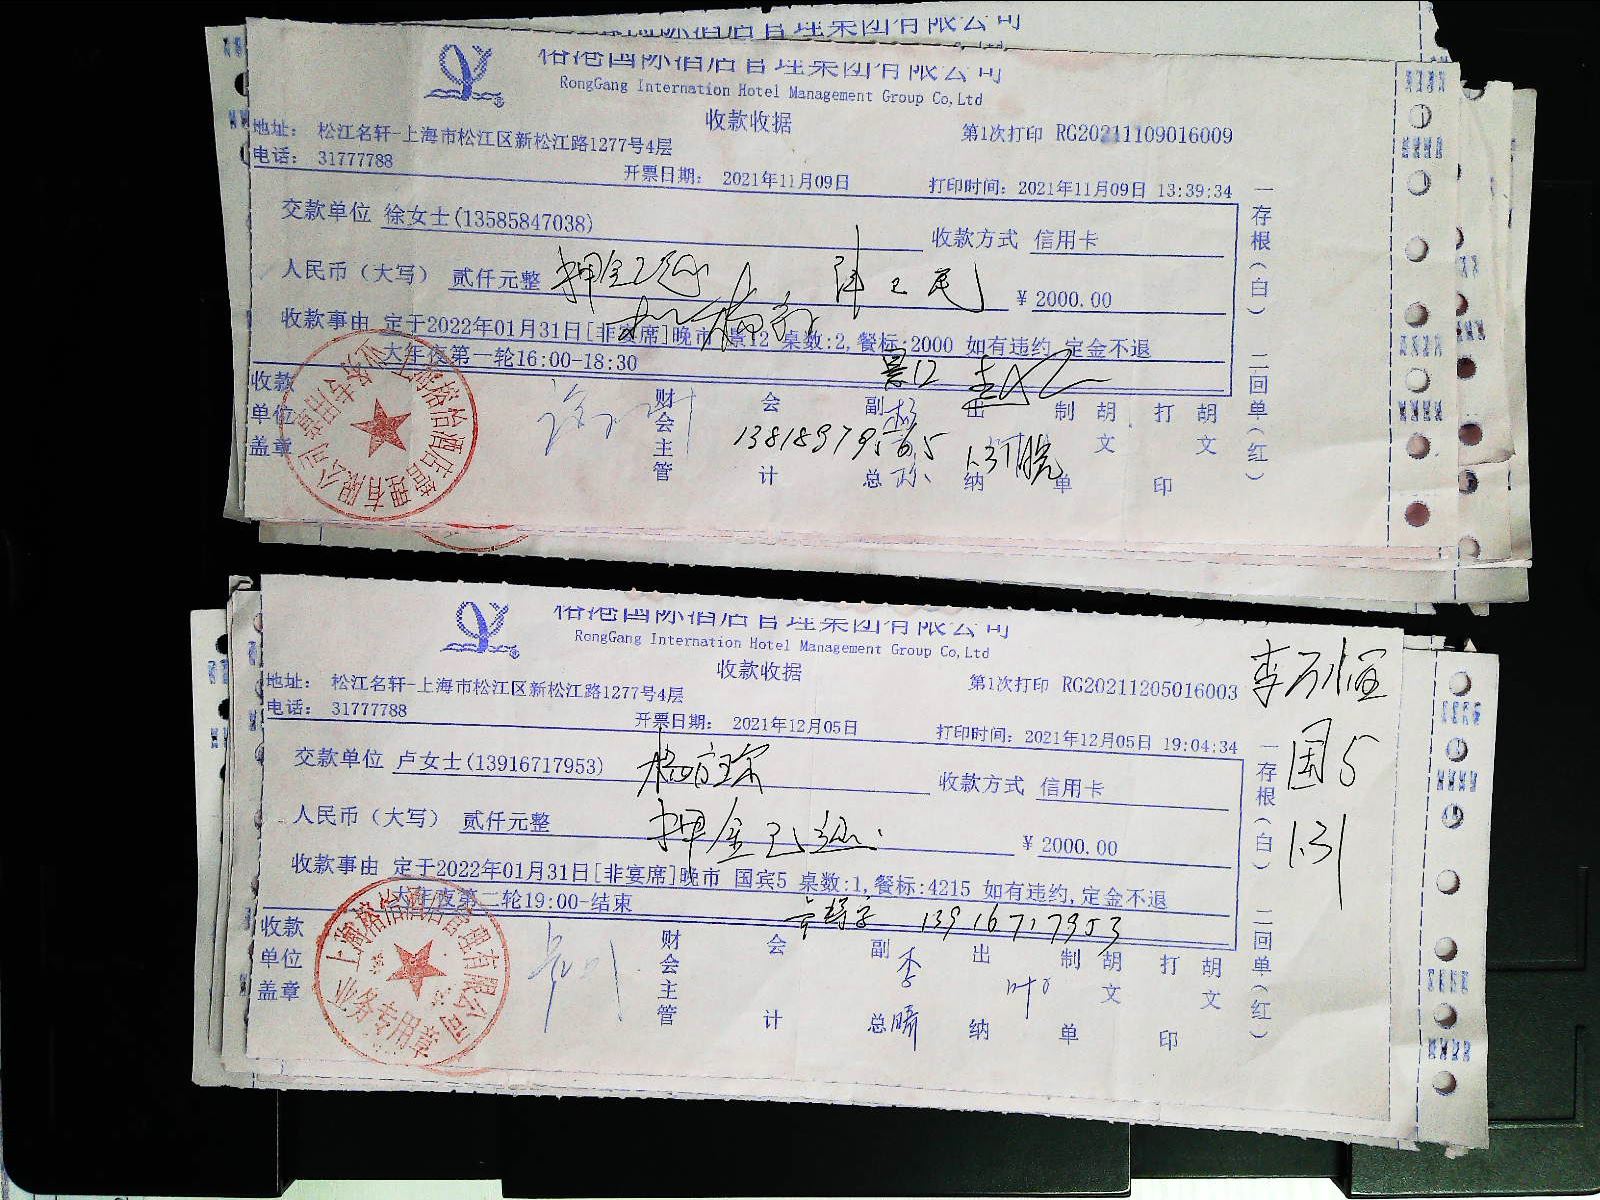 榕港国际酒店管理集团有限公司
RongGang Internation Hotel Management Group Co,Ltd
收款收据
地址： 松江名轩-上海市松江区新松江路1277号4层
第1次打印 RG20211109016009
电话： 31777788
开票日期： 2021年11月09日
打印时间：2021年11月09日 13:39:34
交款单位 徐女士(13585847038)
收款方式 信用卡
人民币（大写） 贰仟元整
押金已退
¥ 2000.00
收款事由 定于2022年01月31日[非宴席]晚市 景12 桌数:2,餐标:2000 如有违约,定金不退
大年夜第一轮16:00-18:30
景12
收款单位盖章
财会主管
会计
副总
出纳
制单
胡文
打印
胡文
1.31晚
一存根(白) 二回单(红)
榕港国际酒店管理集团有限公司
RongGang Internation Hotel Management Group Co,Ltd
收款收据
地址： 松江名轩-上海市松江区新松江路1277号4层
第1次打印 RG20211205016003
电话： 31777788
开票日期： 2021年12月05日
打印时间：2021年12月05日 19:04:34
国5
1.31
交款单位 卢女士(13916717953)
收款方式 信用卡
人民币（大写） 贰仟元整
押金已退
¥ 2000.00
收款事由 定于2022年01月31日[非宴席]晚市 国宾5 桌数:1,餐标:4215 如有违约,定金不退
大年夜第二轮19:00-结束
13916717953
收款单位盖章
财会主管
会计
副总
李
出纳
制单
胡文
打印
胡文
一存根(白) 二回单(红)
业务专用章